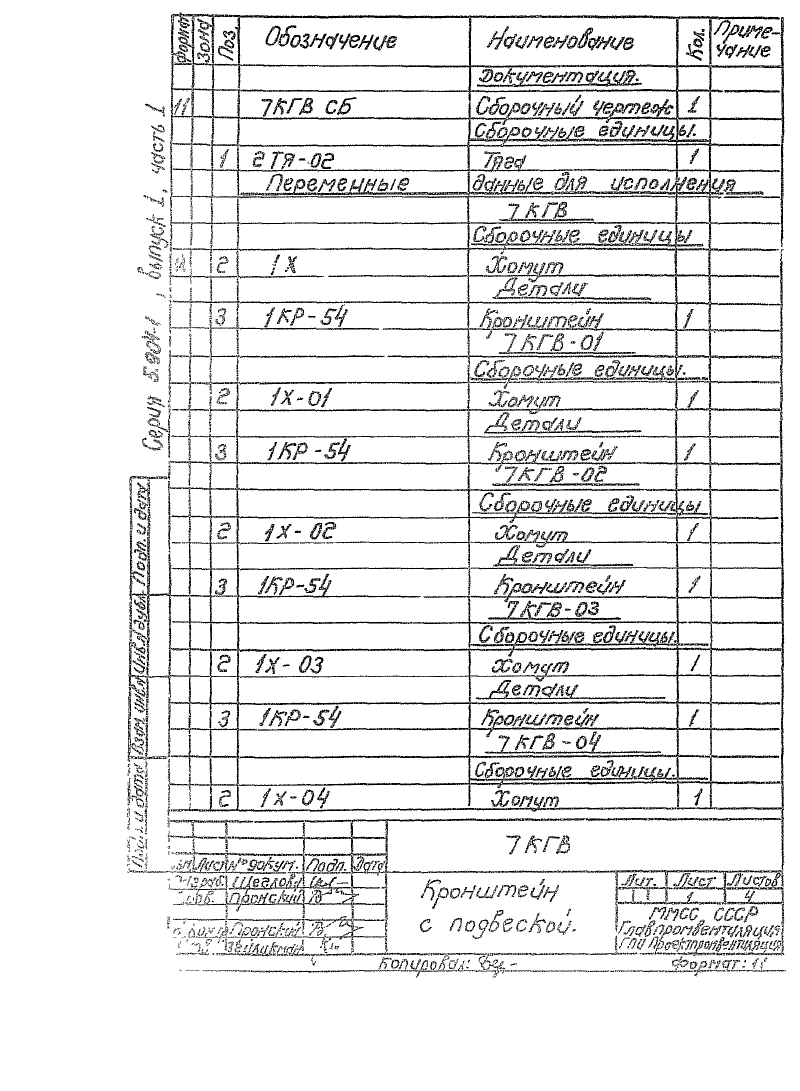 Форма Зона Поз. Обозначение Наименование Кол. Приме-
чание
Документация.
11 7КГВ СБ Сборочный чертеж 1
Сборочные единицы.
1 2ТЯ-02 Тяга 1
Переменные данные для исполнения
7КГВ
Сборочные единицы
2 1Х Хомут
Детали
3 1КР-54 Кронштейн 1
7КГВ-01
Сборочные единицы.
2 1Х-01 Хомут 1
Детали
3 1КР-54 Кронштейн 1
7КГВ-02
Сборочные единицы
2 1Х-02 Хомут 1
Детали
3 1КР-54 Кронштейн 1
7КГВ-03
Сборочные единицы.
2 1Х-03 Хомут 1
Детали
3 1КР-54 Кронштейн 1
7КГВ-04
Сборочные единицы.
2 1Х-04 Хомут 1
Серия 5.904-1, выпуск 1, часть 1
Подп. и дата
Инв.№ дубл.
Взам. инв.№
Подп. и дата
7КГВ
Лист №докум. Подп. Дата
Щеглова
Пронский
Пронский
Кронштейн
с подвеской.
Лит. Лист Листов
1 4
ММСС СССР
Главпромвентиляция
ГПИ Проектпромвентиляция
Копировал: Формат: 11